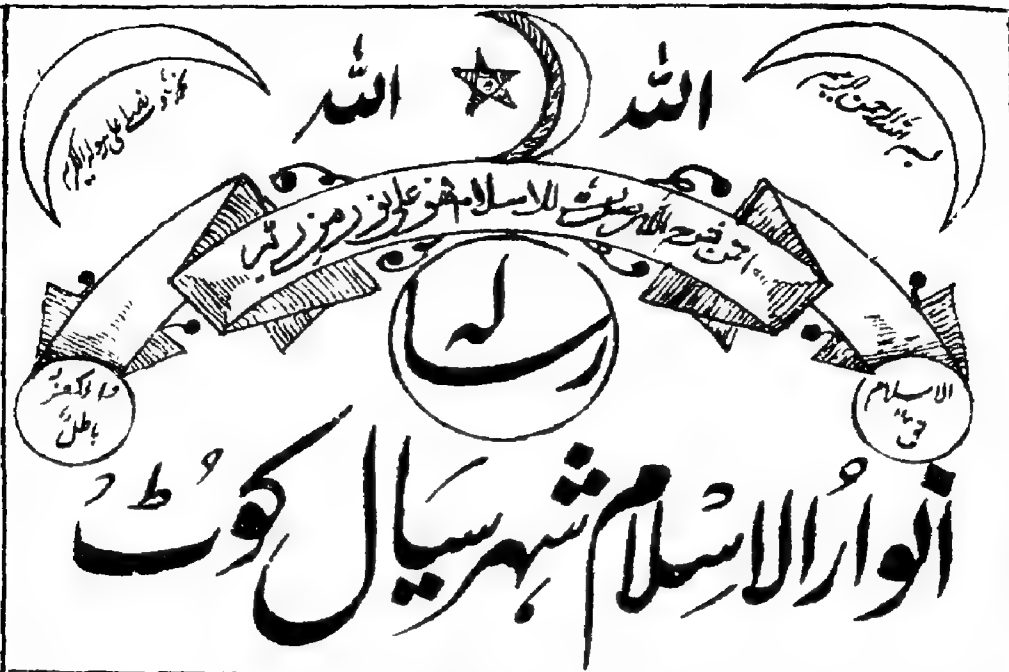 بسم الله الرحمن الرحیم
الله
الله
نحمدہ و نصلے علی رسولہ الکریم
افمن شرح الله صدرہ للاسلام فهو علی نور من ربہ
رسالہ
الاسلام
حق
والکفر
باطل
انوارُ الاسْلام شہر سیَال کوُٹ